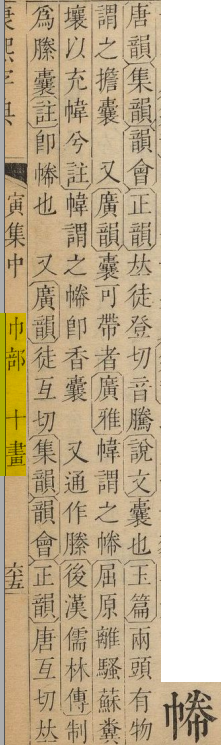 幐
唐韻集韻韻會正韻𠀤徒登切音騰說文囊也玉篇兩頭有物
謂之擔囊　又廣韻囊可帶者廣雅幃謂之幐屈原離騷蘇糞
壤以充幃兮註幃謂之幐卽香囊　又通作縢後漢儒林傳制
爲縢囊註卽幐也　又廣韻徒互切集韻韻會正韻唐互切𠀤
康熙字典　寅集中　巾部　十畫　六十五